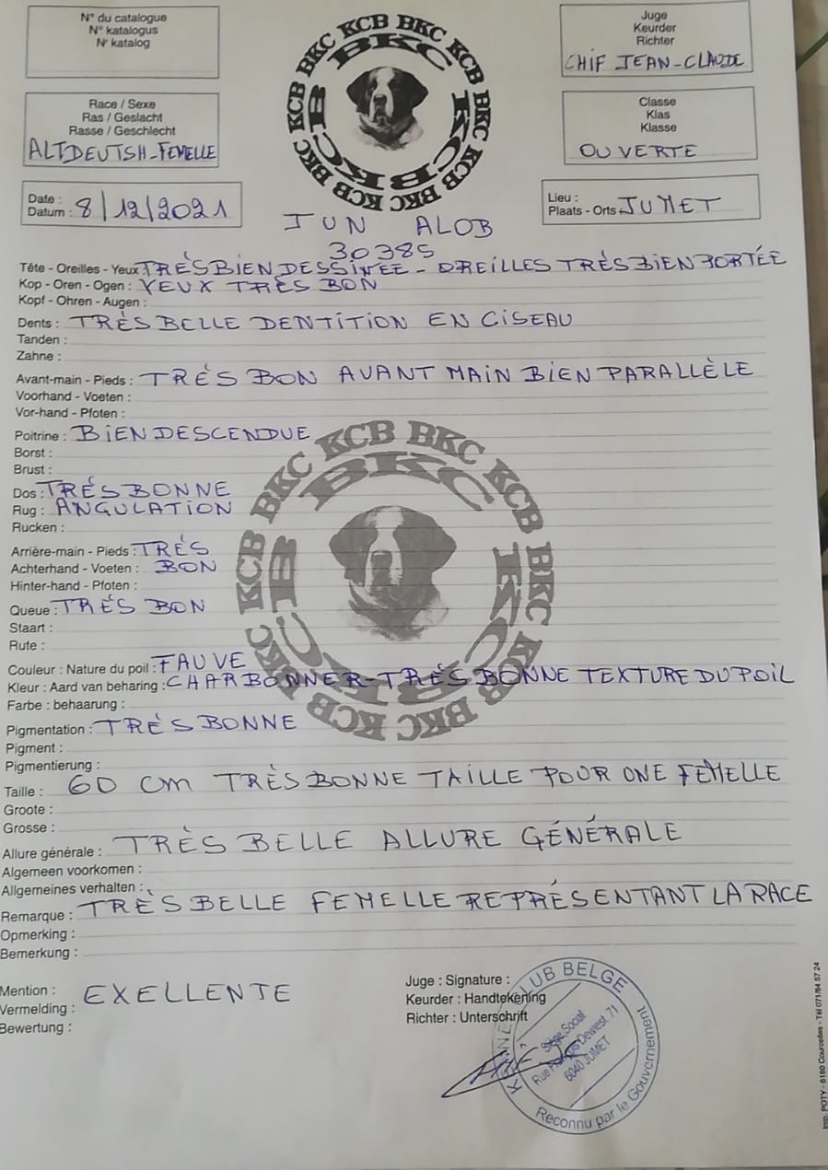 N° du catalogue
N° katalogus
Nr katalog
Juge
Keurder
Richter
CHIF JEAN-CLAUDE
BKC KCB BKC KCB BKC KCB BKC KCB
BKC KCB
Race / Sexe
Ras / Geslacht
Rasse / Geschlecht
ALTDEUTSH-FEMELLE
Classe
Klas
Klasse
OUVERTE
Date :
Datum : 8/12/2021
Lieu :
Plaats - Orts JUMET
JUN ALOB
30385
Tête - Oreilles - Yeux TRÉS BIEN DESSINÉE - OREILLES TRÉS BIEN PORTÉE
Kop - Oren - Ogen : YEUX TRÈS BON
Kopf - Ohren - Augen :
Dents : TRÈS BELLE DENTITION EN CISEAU
Tanden :
Zahne :
Avant-main - Pieds : TRÉS BON AVANT MAIN BIEN PARALLÈLE
Voorhand - Voeten :
Vor-hand - Pfoten :
Poitrine : BIEN DESCENDUE
Borst :
Brust :
Dos : TRÉS BONNE
Rug : ANGULATION
Rucken :
Arrière-main - Pieds : TRÉS
Achterhand - Voeten : BON
Hinter-hand - Pfoten :
Queue : TRÉS BON
Staart :
Rute :
Couleur : Nature du poil : FAUVE
Kleur : Aard van beharing : CHARBONNER-TRÉS BONNE TEXTURE DU POIL
Farbe : behaarung :
Pigmentation : TRÈS BONNE
Pigment :
Pigmentierung :
Taille : 60 cm TRÈS BONNE TAILLE POUR UNE FEMELLE
Groote :
Grosse :
Allure générale : TRÈS BELLE ALLURE GÉNÉRALE
Algemeen voorkomen :
Allgemeines verhalten :
Remarque : TRÈS BELLE FEMELLE REPRÉSENTANT LA RACE
Opmerking :
Bemerkung :
BKC KCB BKC KCB BKC KCB BKC KCB
BKC KCB
Mention : EXELLENTE
Vermelding :
Bewertung :
Juge : Signature :
Keurder : Handtekening
Richter : Unterschrift
CLUB BELGE
Siège Social
Dewiest. 71
6040 JUMET
Reconnu par le Gouvernement
Imp. POTY - 6180 Courcelles - Tél 071/84 57 24